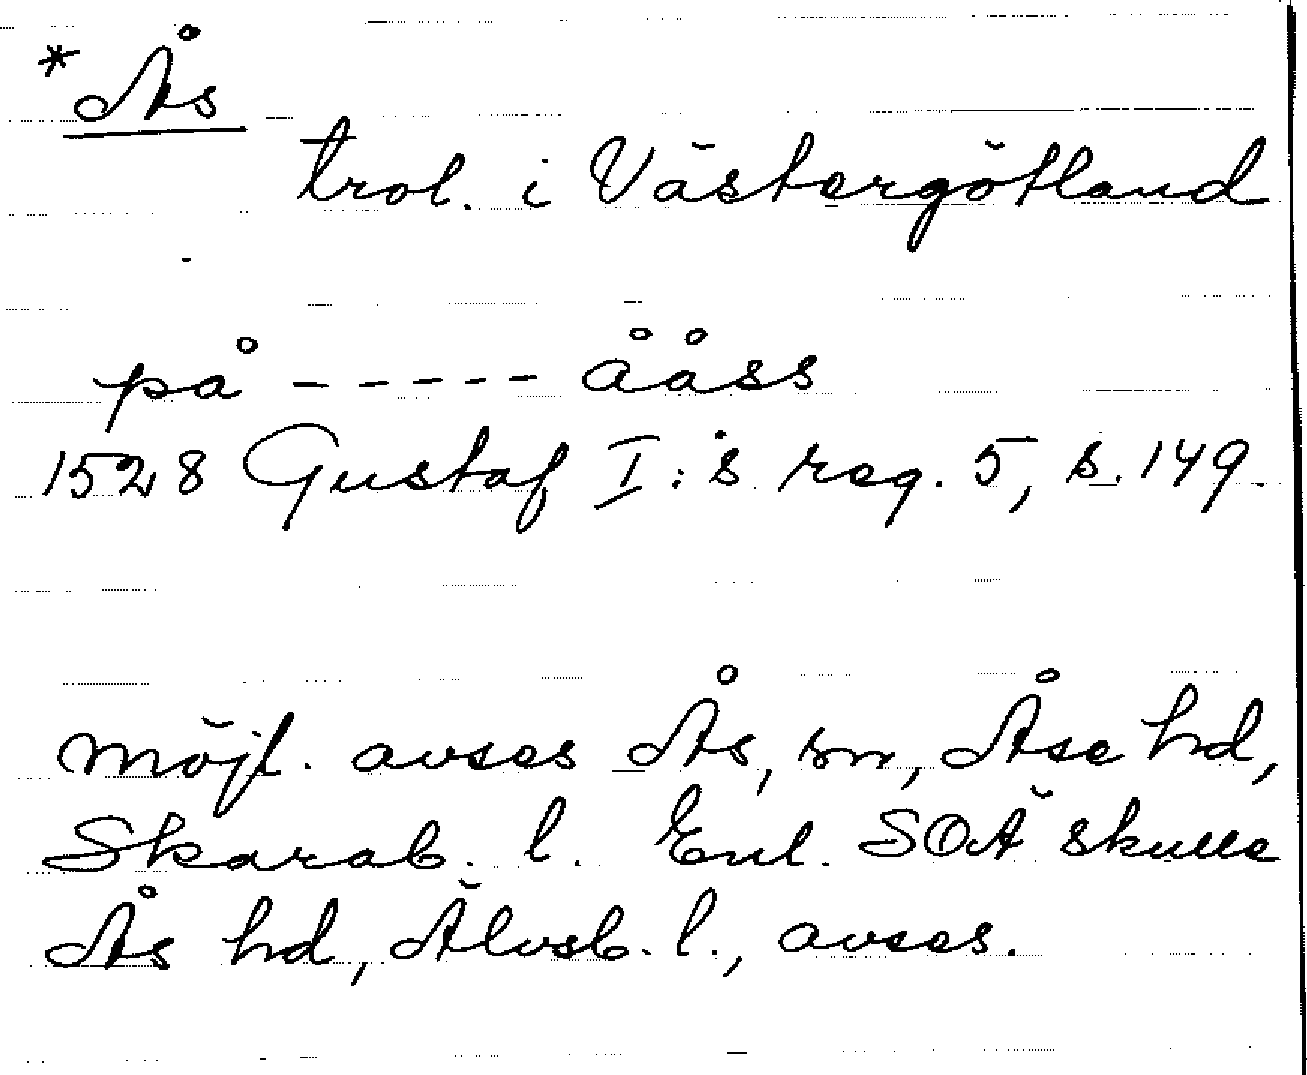 * Ås
trol. i Västergötland
på ----- ååss
1528 Gustaf I:s reg. 5, s. 149.
möjl. avses Ås, sn, Åse hd,
Skarab. l. Enl. SOÄ skulle
Ås hd, Älvsb. l., avses.